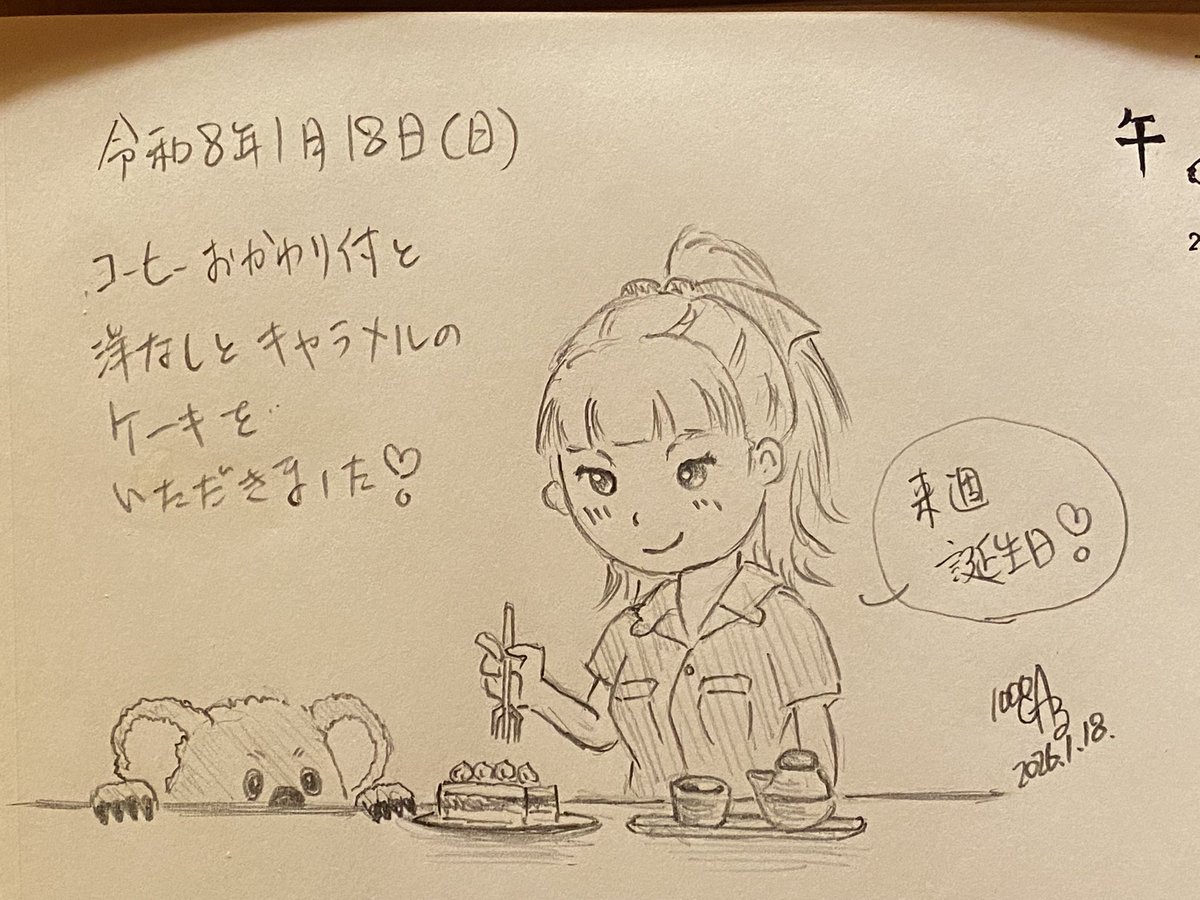 令和8年1月18日(日)
コーヒーおかわり付と
洋なしとキャラメルの
ケーキを
いただきました♡
来週
誕生日♡
2026.1.18.
午
2